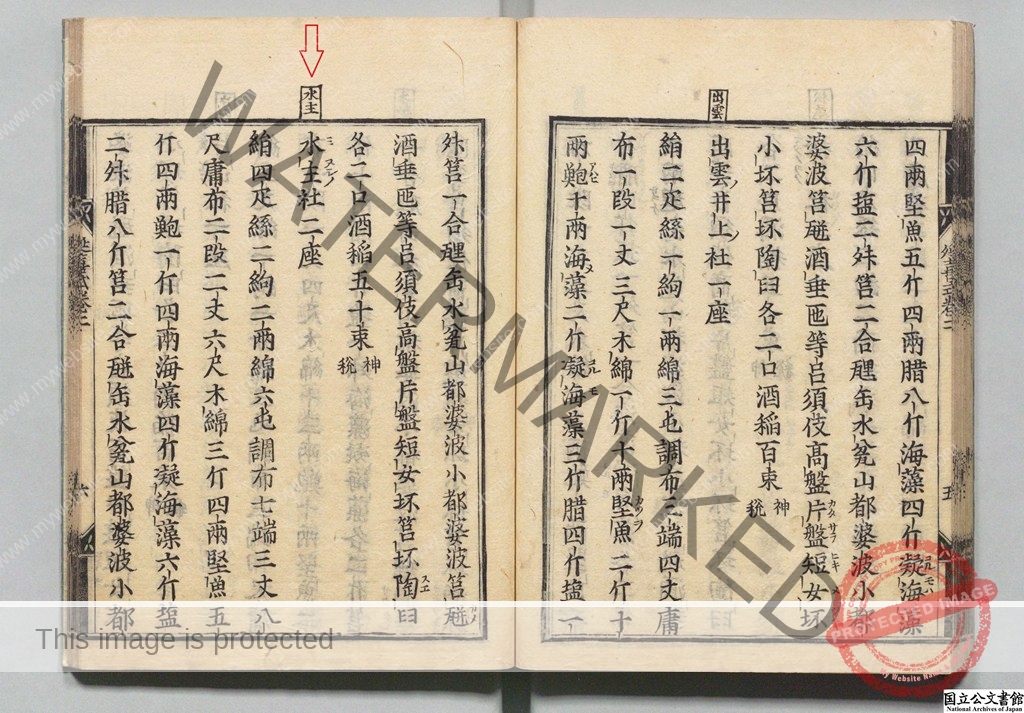 出雲
四兩堅魚五斤四兩腊八斤海藻四斤凝海藻
六斤塩二
筥二合
缶水瓫山都婆波小都
婆波筥
酒垂匜等呂須伎高盤片盤短女坏
小坏筥坏陶臼各二口酒稲百束神税
出雲井上社一座
絹二疋絲一絇一兩綿三屯調布三端四丈庸
布一段一丈三尺木綿一斤十兩堅魚二斤十
兩鰒十兩海藻二斤凝海藻三斤腊四斤塩一
水主
筥一合
缶水瓫山都婆波小都婆波筥
酒垂匜等呂須伎高盤片盤短女坏筥坏陶臼
各二口酒稲五十束神税
水主社二座
絹四疋絲二絇二兩綿六屯調布七端三丈八
尺庸布二段二丈六尺木綿三斤四兩堅魚五
斤四兩鰒一斤四兩海藻四斤凝海藻六斤塩
二
腊八斤筥二合
缶水瓫山都婆波小都
六
WATERMARKED
This image is protected
COPY PROTECTED
PROTECTED IMAGE
My Website Name
国立公文書館
National Archives of Japan